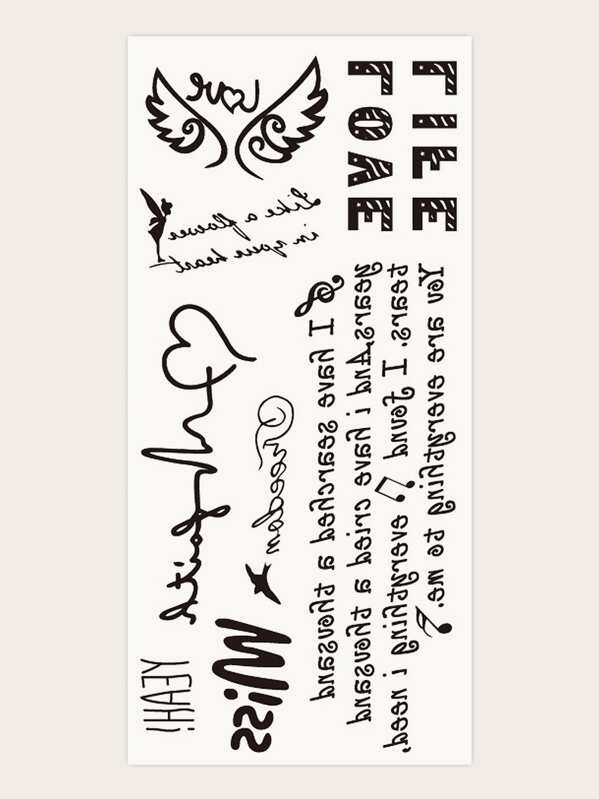 love
LOVE
LIFE
Like a flower
in your heart
I have searched a thousand
years,And i have cried a thousand
tears. I found everything i need,
You are everything to me.
faith
Freedom
Miss
YEAH!